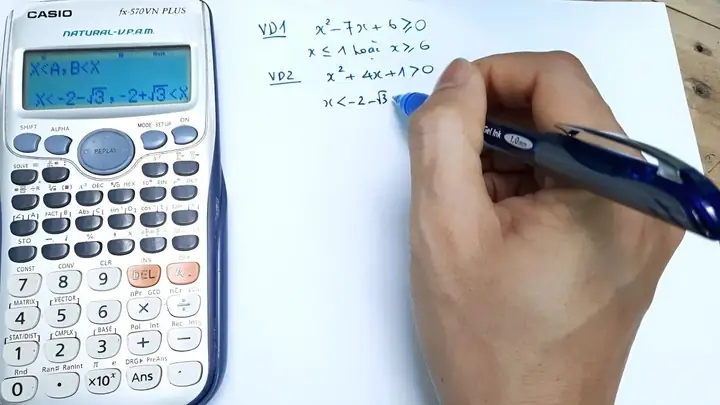 CASIO fx-570VN PLUS
NATURAL-V.P.A.M.
X<A, B<X
X<-2-√3, -2+√3<X
SHIFT ALPHA MODE SETUP ON
REPLAY
SOLVE =
STO
CONST CONV CLR INS
7 8 9 DEL
[MATRIX] [VECTOR] nPr GCD
4 5 6 × ÷
[STAT/DIST] [CMPLX] [BASE] Pol Int Rec
1 2 3 + -
Rnd Ran# RanInt π e DRG▸ PreAns
0 . ×10ˣ Ans
VD1 x²-7x+6≥0
x≤1 hoặc x≥6
VD2 x²+4x+1>0
x<-2-√3
Gel Ink 1.0mm